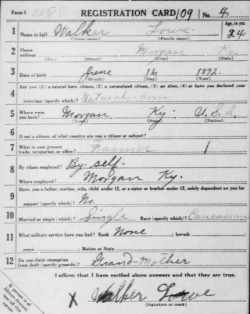 Form 1 REGISTRATION CARD 109 No. 4
1 Name in full Walker Lowe Age, in yrs 24
2 Home address Morgan Ky
3 Date of birth June 16 1892
4 Are you (1) a natural-born citizen, (2) a naturalized citizen, (3) an alien, (4) or have you declared your intention (specify which)? Natural-born
5 Where were you born? Morgan Ky. U.S.A.
6 If not a citizen, of what country are you a citizen or subject?
7 What is your present trade, occupation, or office? Farmer
8 By whom employed? By self.
Where employed? Morgan Ky.
9 Have you a father, mother, wife, child under 12, or a sister or brother under 12, solely dependent on you for support (specify which)? No
10 Married or single (which)? Single Race (specify which)? Caucasian
11 What military service have you had? Rank None branch
years Nation or State
12 Do you claim exemption from draft (specify grounds)? Grand-Mother
I affirm that I have verified above answers and that they are true.
X Walker Lowe
(Signature or mark)